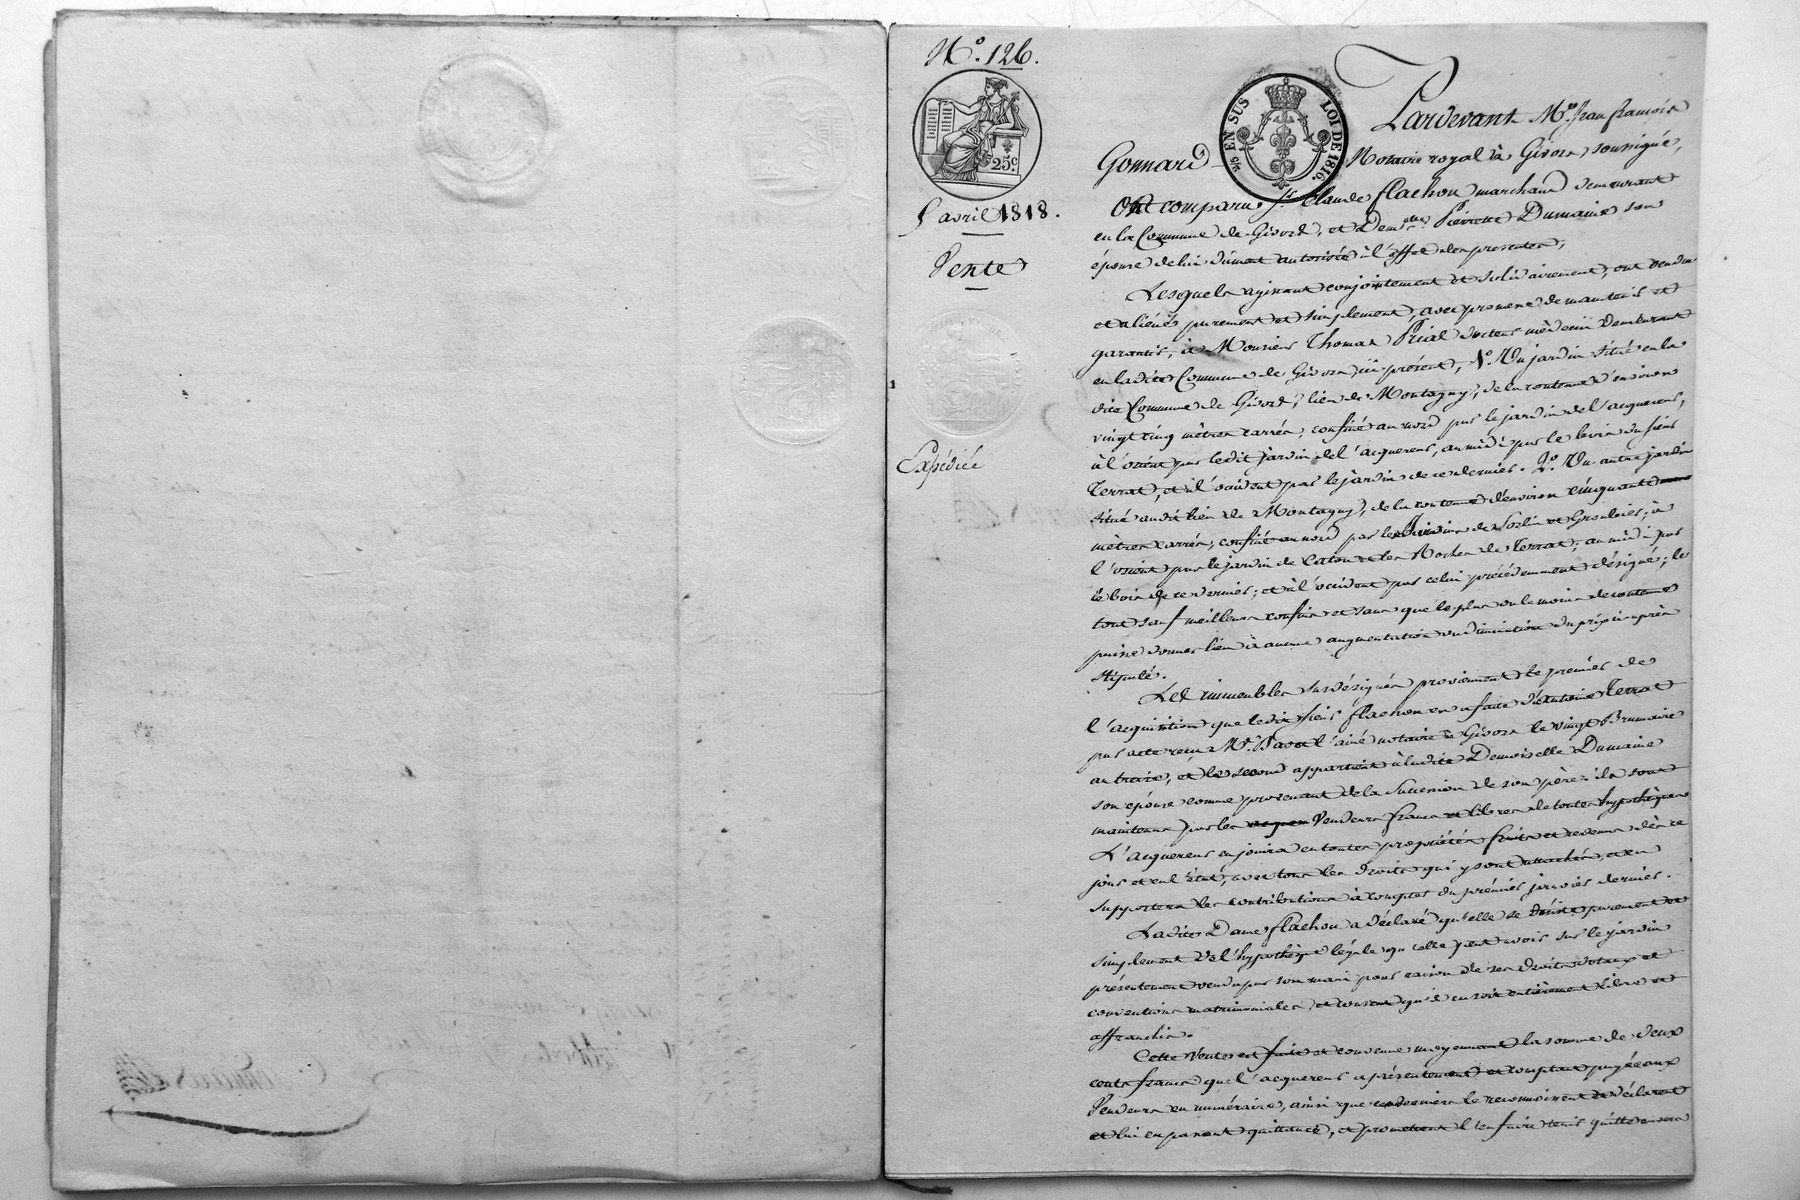 N.º 126.
25.c
5 avril 1818.
Vente
Expédiée
2/10 EN SUS
LOI DE 1816.
Pardevant M.re Jean françois
Gonnard Notaire royal à Givors soussigné,
Ont comparu S.r Claude flachon marchand demeurant
en la Commune de Givord, et Dem.elle Pierrette Dumaine son
épouse de lui dument autorisée à l'effet des presentes;
Lesquels agissant conjointement et solidairement, ont vendu
et aliéné purement et simplement, avec promesse de maintenir et
garantir, à Monsieur Thomas Prial docteur médecin demeurant
en ladite Commune de Givors, ici présent, 1.º Un jardin situé en la
dite Commune de Givord, lieu de Montagny, de la contenue d'environ
vingt cinq mètres carrés, confiné au nord par le jardin de l'acquereur,
à l'orient par ledit jardin de l'acquereur, au midi par le bois du sieur
Terrat, et à l'occident par le jardin de ce dernier. 2.º Un autre jardin
situé audit lieu de Montagny, de la contenue d'environ cinquante
mètres carrés, confiné au nord par les jardins de Sorlin et Grenbier; à
l'orient par le jardin de Caton et les Roches de Terrat; au midi par
le bois de ce dernier; et à l'occident par celui précédemment désigné; le
tout sauf meilleurs confins et sans que le plus ou le moins de contenue
puisse donner lieu à aucune augmentation ou diminution du prix ci-après
stipulé.
Les immeubles susdésignés proviennent le premier de
l'acquisition que ledit sieur flachon en a faite d'Antoine Terrat
par acte reçu M.e l'ainé notaire à Givors le vingt Brumaire
an treize, et le second appartient à ladite Demoiselle Dumaine
son épouse comme provenant de la Succession de son père. ils sont
maintenus par les Vendeurs francs et libres de toutes hypothèques
L'acquereur en jouira en toutes propriétés fruits et revenus dès ce
jour et en l'état, avec tous les droits qui y sont attachés, et en
supportera les contributions à compter du prémier janvier dernier.
Ladite Dame flachon a déclaré qu'elle se désiste purement et
simplement de l'hypothèque légale qu'elle peut avoir sur le jardin
présentement vendu par son mari pour raison de ses droits dotaux et
conventions matrimoniales, et consent qu'il en soit entièrement libre et
affranchi.
Cette Vente est faite et convenue moyennant la somme de deux
cents francs que l'acquereur a présentement et comptant payée aux
Vendeurs en numéraire, ainsi que ces derniers le reconnoissent et déclarent
et lui en passent quittance, et promettent l'en faire tenir quitte envers